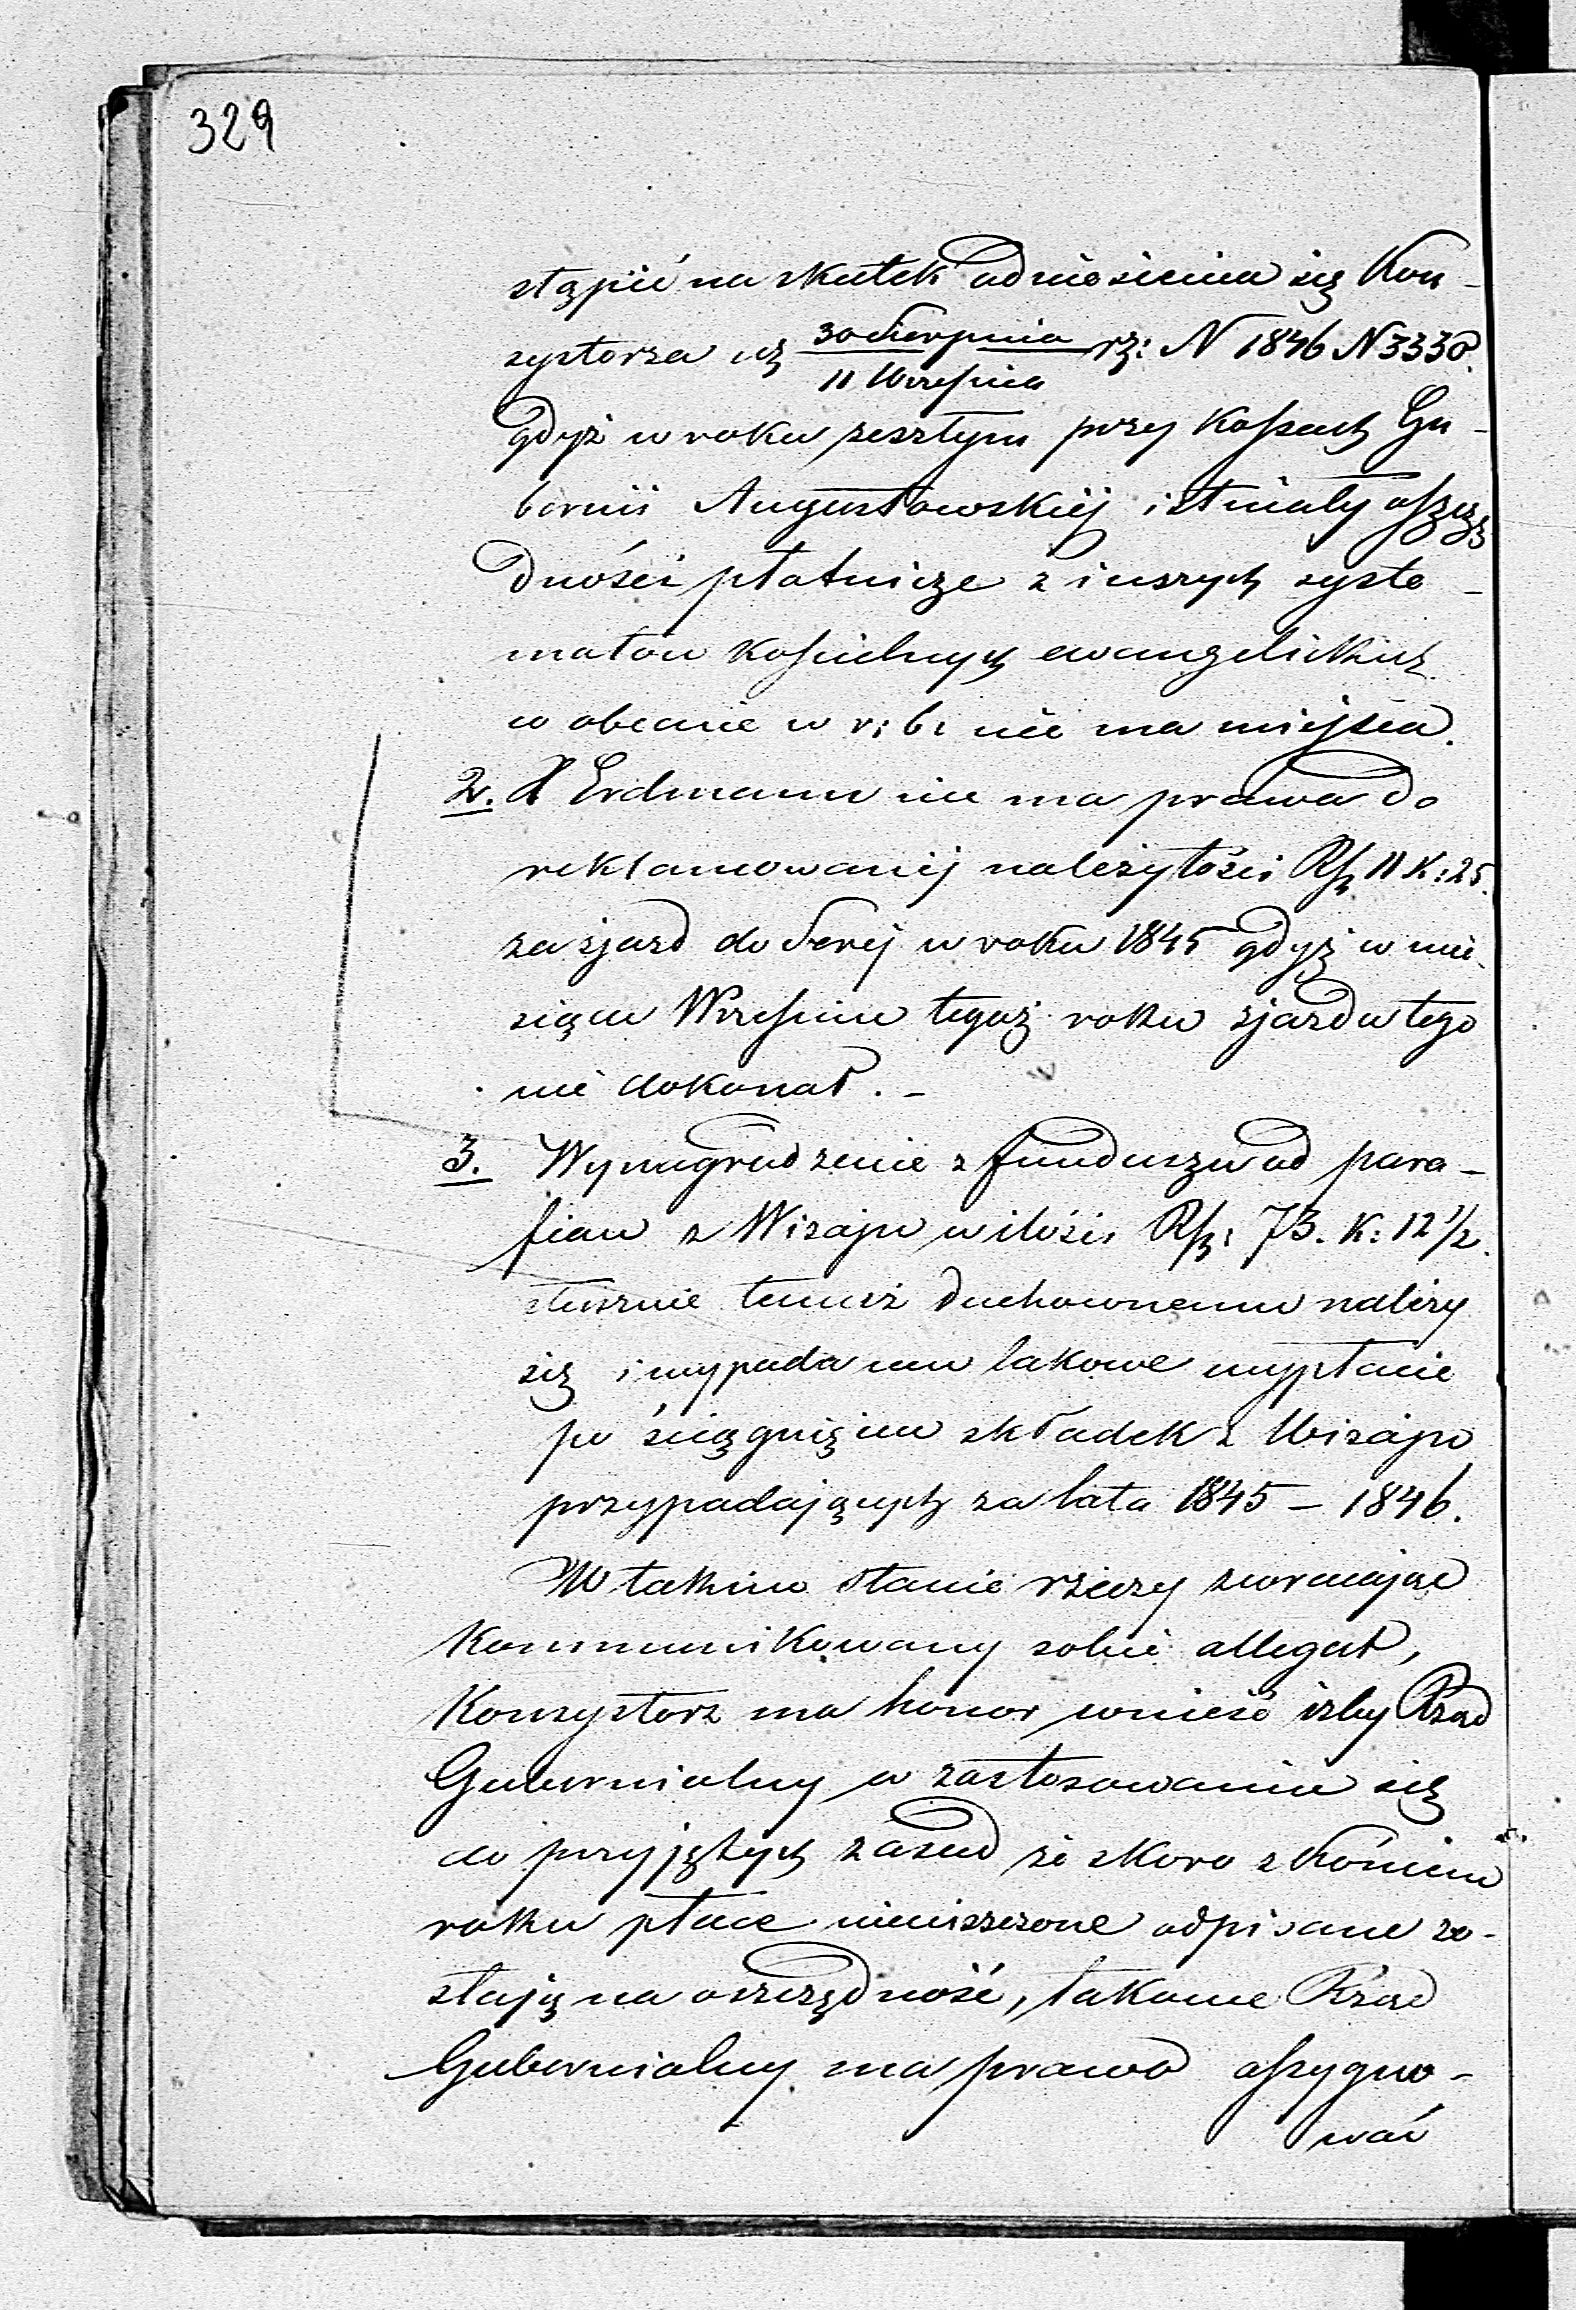 329
stąpić na skutek odniesienia się Kon-
systorza z 30 Sierpnia / 11 Września r: N 1846 N 3330.
gdyż w roku zeszłym przy Kassach Gu-
bernii Augustowskiéj istniały oszczę
dności płatnicze z innych syste-
matów kościelnych ewangelickich
co obecnie w r: b: nie ma miejsca.
2. X Erdmann nie ma prawa do
reklamowanéj należytości Rs 11 K: 25.
za zjazd do Serej w roku 1845 gdyż w mie-
siącu Wrześniu tegoż roku zjazdu tego
nie dokonał. -
3. Wynagrodzenie z funduszu od para-
fian z Wiżajn w ilości Rs: 73. K: 12 1/2.
słusznie temuż duchownemu należy
się i wypada mu takowe wypłacić
po ściągnięciu składek z Wiżajn
przypadających za lata 1845 - 1846.
W takim stanie rzeczy zwracając
Kommunikowany sobie allegat,
Konsystorz ma honor wnieść iżby Rząd
Gubernialny w zastosowaniu się
do przyjętych zasad że skoro z końcem
roku płace nieuiszczone odpisane zo-
stają na oszczędność, takowe Rząd
Gubernialny ma prawo assygno-
wać